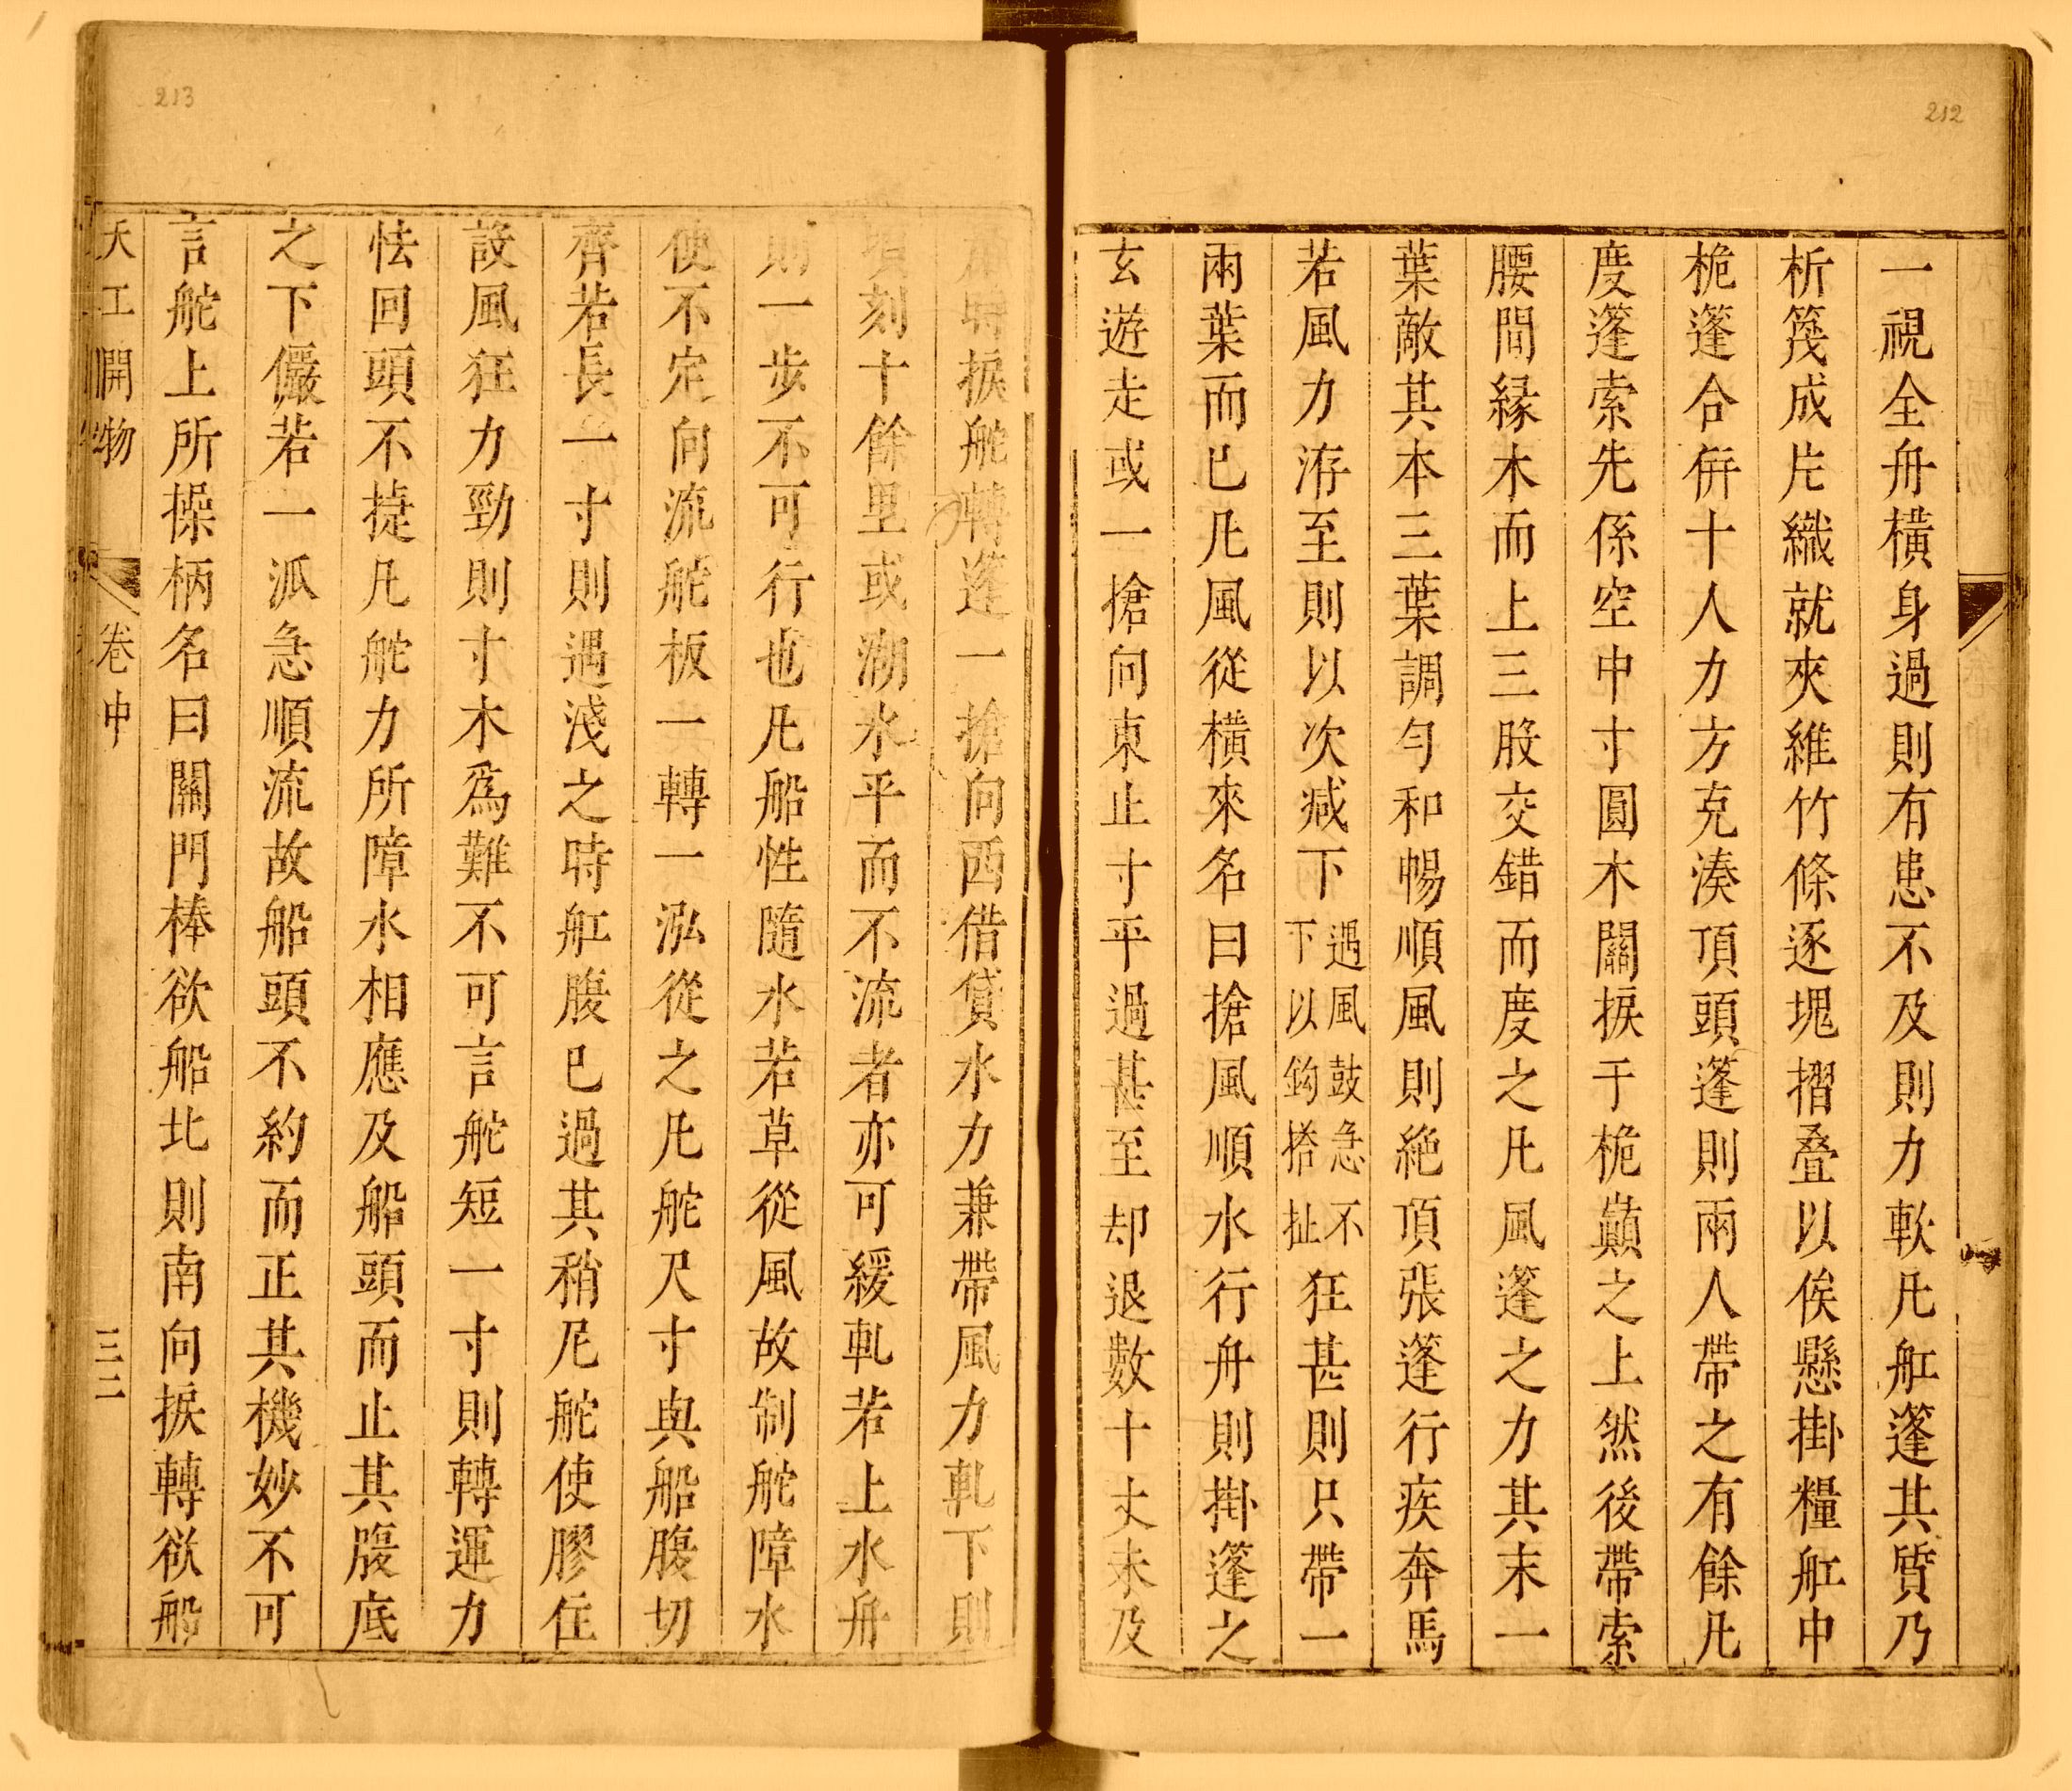 212
一視全舟橫身過則有患不及則力軟凡舡篷其質乃
析篾成片織就夾維竹條逐塊摺疊以俟懸掛糧舡中
桅篷合併十人力方克湊頂頭篷則兩人帶之有餘凡
度篷索先係空中寸圓木關捩于桅巔之上然後帶索
腰間緣木而上三股交錯而度之凡風篷之力其末一
葉敵其本三葉調勻和暢順風則絶頂張篷行疾奔馬
若風力洊至則以次減下遇風鼓急不下以鈎搭扯狂甚則只帶一
兩葉而已凡風從橫來名曰搶風順水行舟則掛篷之
玄遊走或一搶向東止寸平過甚至却退數十丈未及
213
岸時捩舵轉篷一搶向西借貸水力兼帶風力軋下則
頃刻十餘里或湖水平而不流者亦可緩軋若上水舟
則一步不可行也凡船性隨水若草從風故制舵障水
使不定向流舵板一轉一泓從之凡舵尺寸與船腹切
齊若長一寸則遇淺之時舡腹已過其稍尼舵使膠住
設風狂力勁則寸木爲難不可言舵短一寸則轉運力
怯回頭不捷凡舵力所障水相應及船頭而止其腹底
之下儼若一派急順流故船頭不約而正其機妙不可
言舵上所操柄名曰關門棒欲船北則南向捩轉欲船
天工開物 卷中 三二